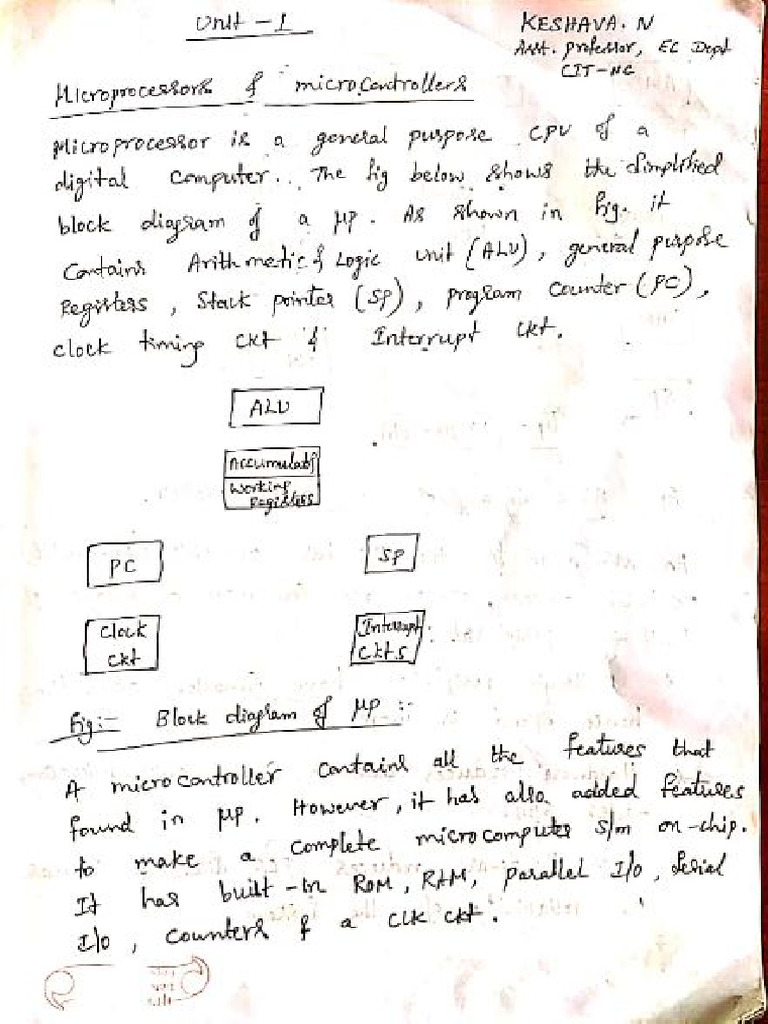 Unit - 1
KESHAVA. N
Asst. professor, EC Dept
CIT-NG
Microprocessors & microcontrollers
Microprocessor is a general purpose CPU of a
digital computer.. The fig below shows the simplified
block diagram of a μp. As shown in fig. it
contains Arithmetic & Logic unit (ALU), general purpose
Registers, Stack pointer (SP), program counter (PC),
clock timing ckt & Interrupt ckt.
ALU
Accumulator
Working
Registers
PC
SP
Clock
ckt
Interrupt
Ckts
Fig:- Block diagram of μp :-
A microcontroller contains all the features that
found in μp. However, it has also added features
to make a complete microcomputer s/m on-chip.
It has built-in ROM, RAM, parallel I/o, Serial
I/o, counters & a clk ckt.